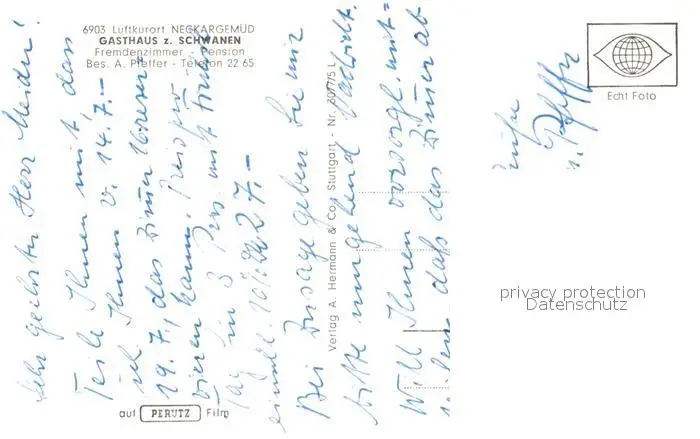 6903 Luftkurort NECKARGEMÜD
GASTHAUS z. SCHWANEN
Fremdenzimmer - Pension
Bes. A. Pfeffer - Telefon 22 65
Sehr geehrter Herr Meider!
Teile Ihnen mit, dass
ich Ihnen v. 14.7.-
19.7., das Zimmer reser-
vieren kann. Preis pro
Tag für 3 Pers. mit Frühst.
einschl. 10% 27.-
Bei Zusage geben Sie mir
bitte umgehend Nachricht.
Will Ihnen vorsorgl. mit-
daß das Zimmer ab
Pfeffer
Verlag A. Hermann & Co., Stuttgart - Nr. 5077/5 L
Echt Foto
auf PERUTZ Film
privacy protection
Datenschutz